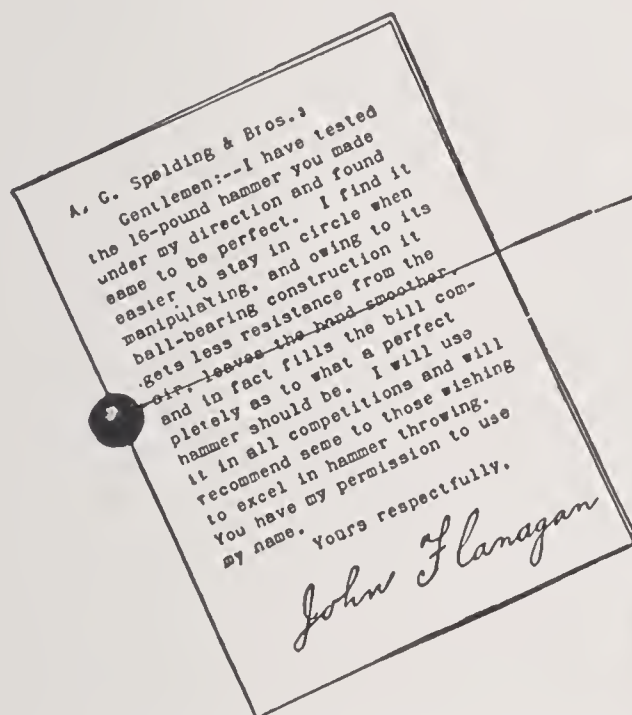 A. G. Spalding & Bros.,
Gentlemen:--I have tested
the 16-pound hammer you made
under my direction and found
same to be perfect. I find it
easier to stay in circle when
manipulating, and owing to its
ball-bearing construction it
gets less resistance from the
air, leaves the hand smoother,
and in fact fills the bill com-
pletely as to what a perfect
hammer should be. I will use
it in all competitions and will
recommend seme to those wishing
to excel in hammer throwing.
You have my permission to use
my name.
Yours respectfully,
John Flanagan